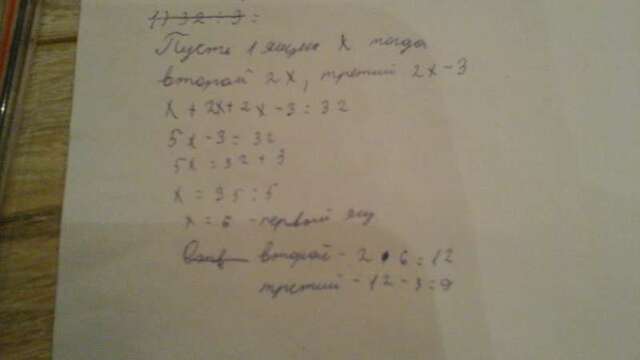 1) 32 : 3 =
Пусть 1 ящик x тогда
второй 2x, третий 2x-3
x + 2x + 2x - 3 = 32
5x - 3 = 32
5x = 32 + 3
x = 35 : 5
x = 6 - первый ящ
второй - 2 • 6 = 12
третий - 12 - 3 = 9